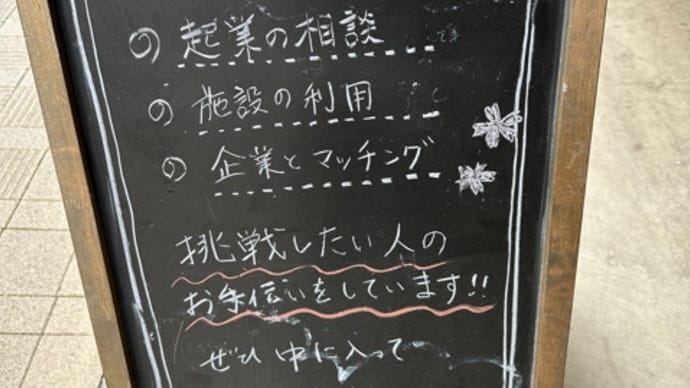 起業の相談
施設の利用
企業とマッチング
挑戦したい人の
お手伝いをしています!!
ぜひ中に入って